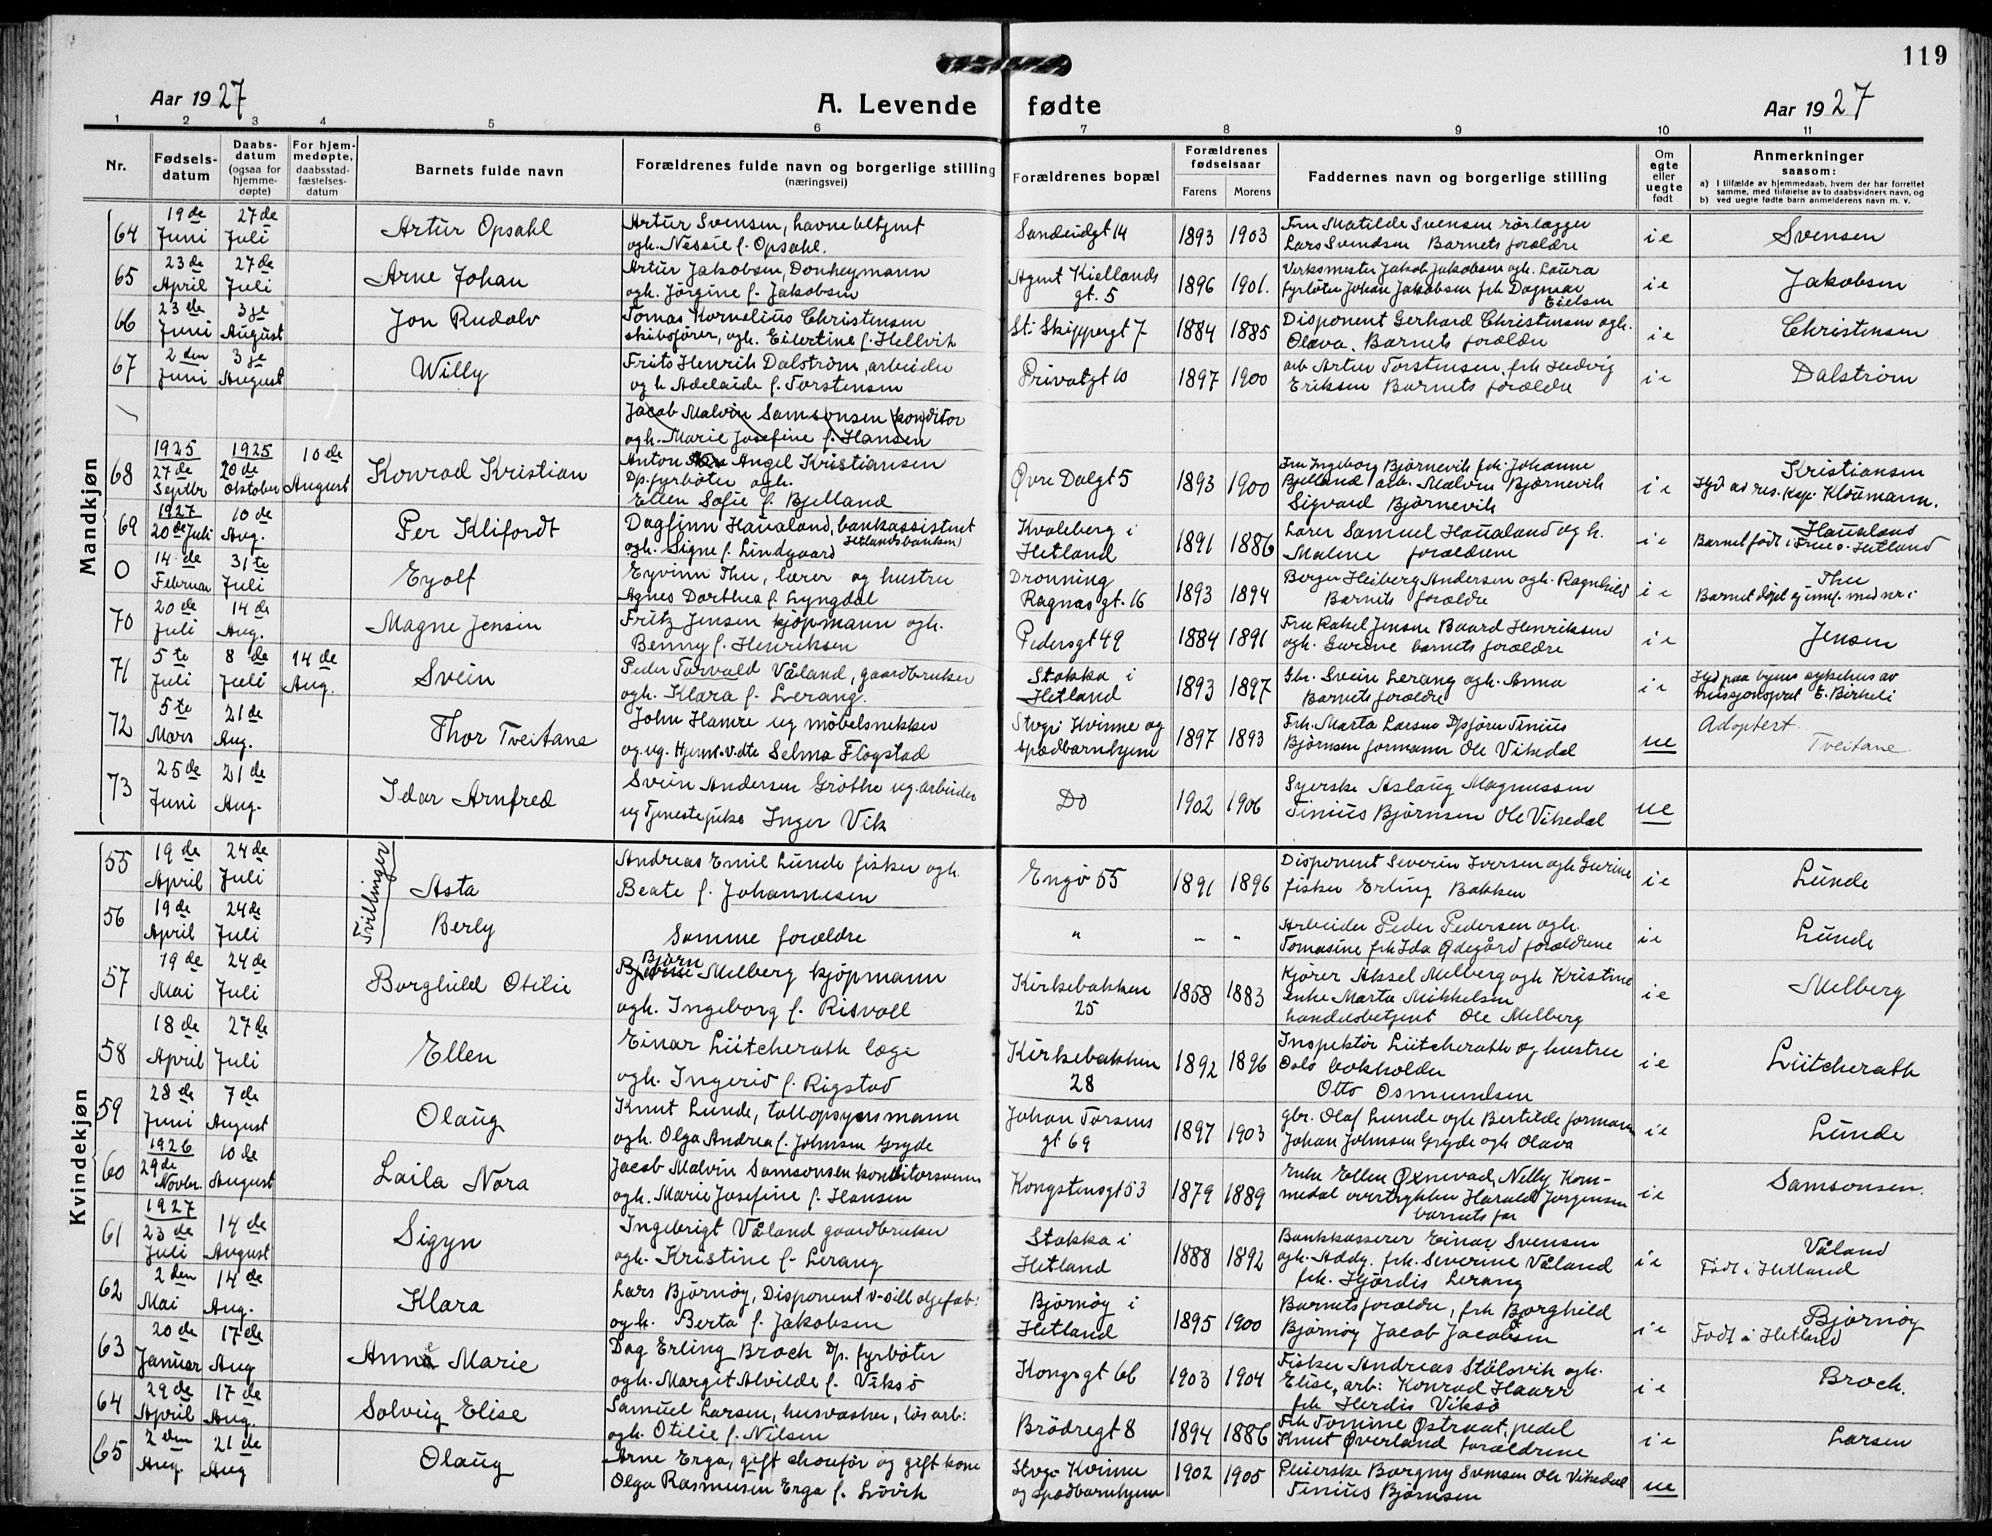 119
Aar 1927
A. Levende fødte
Aar 1927
1 2 3 4 5 6 7 8 9 10 11
Nr.
Fødsels-datum
Daabs-datum (ogsaa for hjemme-døpte)
For hjem-medøpte, daabsstad-fæstelses-datum
Barnets fulde navn
Forældrenes fulde navn og borgerlige stilling (næringsvei)
Forældrenes bopæl
Forældrenes fødselsaar
Farens Morens
Faddernes navn og borgerlige stilling
Om egte eller uegte født
Anmerkninger saasom:
a) I tilfælde av hjemmedaab, hvem der har forrettet samme, med tilføielse av to daabsvidners navn, og
b) ved uegte fødte barn anmelderens navn m. v.
Mandkjøn
64 19de Juni 27de Juli Artur Opsahl Artur Svensen, havnebetjent ogh. Nessie f. Opsahl. Sandeidgt 14 1893 1903 Fru Matilde Svensen rørlægger Lars Svendsen Barnets forældre i e Svensen
65 23de April 27de Juli Arne Johan Artur Jakobsen, Donkeymann ogh. Jørgine f. Jakobsen Agent Kiellands gt. 5 1896 1901. Verksmester Jakob Jakobsen ogh. Laura fyrbøter Johan Jakobsen frk Dagmar Eielsen i e Jakobsen
66 23de Juni 3je August Jon Rudolv Tomas Kornelius Christensen skibsfører, ogh. Eilertine f. Hellvik St. Skippergt 7 1884 1885 Disponent Gerhard Christensen ogh. Olava. Barnets forældre i e Christensen
67 2den Juni 3je August Willy Frits Henrik Dalstrøm, arbeider og h Adelaide f. Torstensen Privatgt 10 1897 1900 arb Artur Torstensen, frk Hedvig Eriksen Barnets forældre i e Dalstrøm
Jacob Malvin Samsonsen konditor ogh. Marie Josefine f. Hansen
68 1925 27de Septbr 1925 20de Oktober 10de August Konrad Kristian Anton Angel Kristiansen Dp. fyrbøter ogh. Ellen Sofie f. Bjelland Øvre Dalgt 5 1893 1900 Fru Ingeborg Bjørnevik frk. Johanne Bjelland arb. Malvin Bjørnevik Sigvard Bjørnevik i e Kristiansen Hjd av res. kap. Kloumann.
69 1927 20de Juli 10de Aug. Per Klifordt Dagfinn Haualand, bankassistent Hetlandsbanken ogh. Signe f. Lindgaard Kvaleberg i Hetland 1891 1886 Lærer Samuel Haualand og h. Malene forældrene i e Haualand Barnet født i Frue s. Hetland
0 14de Februar 31te Juli Eyolf Eyvinn Thu, lærer og hustru Agnes Dorthea f. Lyngdal Dronning Ragnas gt. 16 1893 1894 Berger Heiberg Andersen ogh. Ragnhild Barnets forældre i e Thu Barnet døpt
70 20de Juli 14de Aug. Magne Jensen Fritz Jensen kjøpmann ogh. Benny f. Henriksen Pedersgt 49 1884 1891 Fru Rakel Jensen Baard Henriksen ogh. Gurine barnets forældre i e Jensen
71 5te Juli 8de Juli 14de Aug. Svein Peder Torvald Våland, gaardbruker ogh. Klara f. Lerang. Stokka i Hetland 1893 1897 Gbr. Svein Lerang ogh. Anna Barnets forældre i e Hjd paa byens sykehus av missjonsprest E. Birkeli
72 5te Mars 21de Aug. Thor Tveitane John Hamre ug møbelsnekker og ug. Hjem. vdte Selma Flogstad Stvgr Kvinne og spædbarnhjem 1897 1893 Frk. Marta Larsen Dpfører Tinius Bjørnsen formann Ole Vikedal ue Adoptert. Tveitane
73 25de Juni 21de Aug. Idar Arnfred Svein Andersen Grøthe ug. arbeider ug Tjenestepike Inger Vik Do 1902 1906 Syerske Aslaug Magnussen Tinius Bjørnsen Ole Vikedal ue
Kvindekjøn
55 19de April 24de Juli Tvillinger Asta Andreas Emil Lunde fisker ogh. Beate f. Johannesen Engø 55 1891 1896 Disponent Severin Iversen ogh Gurine fisker Erling Bakken i e Lunde
56 19de April 24de Juli Berly Samme forældre " - " Arbeider Peder Pedersen ogh. Tomasine frk Ida Ødegård forældrene i e Lunde
57 19de Mai 24de Juli Borghild Otilie Bjørn Melberg kjøpmann ogh. Ingeborg f. Risvoll Kirkebakken 25 1858 1883 Kjører Aksel Melberg ogh Kristine enke Marta Mikkelsen handelsbetjent Ole Melberg i e Melberg
58 18de April 27de Juli Ellen Einar Lütcherath læge ogh. Ingerid f. Rigstad Kirkebakken 28 1892 1896 Inspektør Lütcherath og hustru Oslo bokholder Otto Osmundsen i e Lütcherath
59 28de Juni 7de August Olaug Knut Lunde, tollopsynsmann ogh. Olga Andrea f. Johnsen Gryde Johan Torsens gt 69 1897 1903 gbr. Olaf Lunde ogh Bertilde formann Johan Johnsen Gryde ogh Olava i e Lunde
60 1926 29de Novbr. 10de August Laila Nora Jacob Malvin Samsonsen konditorsvenn ogh. Marie Josefine f. Hansen Kongstensgt 53 1879 1889 Enke Ellen Oxnevad, Nelly Kommedal overtrykker Harald Jørgensen barnets far i e Samsonsen.
61 1927 23de Juli 14de August Sigyn Ingebrigt Våland gaardbruker ogh. Kristine f. Lerang Stokka i Hetland 1888 1892 Bankkasserer Einar Svensen ogh. Addy. frk. Severine Våland frk. Hjørdis Lerang i e Våland Født i Hetland
62 2den Mai 14de Aug. Klara Lars Bjørnøy, Disponent v. sildoljefab: ogh. Berta f. Jakobsen Bjørnøy i Hetland 1895 1900 Barnets forældre, frk Borghild Bjørnøy Jacob Jacobsen i e Bjørnøy Født i Hetland
63 20de Januar 17de Aug Anne Marie Dag Erling Broch Dp. fyrbøter ogh. Margit Alvilde f. Viksø Kongsgt 66 1903 1904 Fisker Andreas Stølsvik ogh. Elise, arb: Konrad Haarr frk Herdis Viksø i e Broch.
64 29de April 17de Aug. Solveig Elise Samuel Larsen, husvasker, løsarb: ogh. Otilie f. Nilsen Brødregt 8 1894 1886 Frk Tomine Østraat, pedel Knut Øverland forældrene i e Larsen
65 2den Aug. 21de Aug Olaug Arne Erga, gift chauffør og gift kone Olga Rasmussen Erga f. Løvik Stvgr Kvinne og spædbarnhjem 1902 1905 Pleierske Borgny Svensen Ole Vikedal Tinius Bjørnsen ue